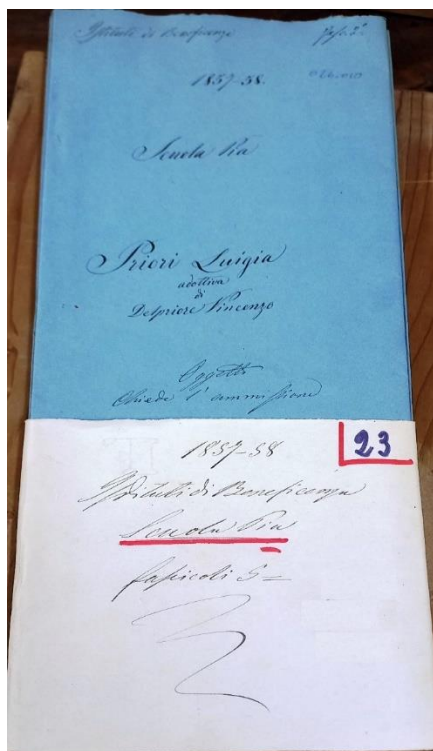 Istituti di Beneficenza
1857-58.
Scuola Pia
Priori Luigia
adottiva
di
Delpriore Vincenzo
Oggetto
Chiede l'ammissione
1857-58
23
Istituti di Beneficenza
Scuola Pia
fascicoli 5=